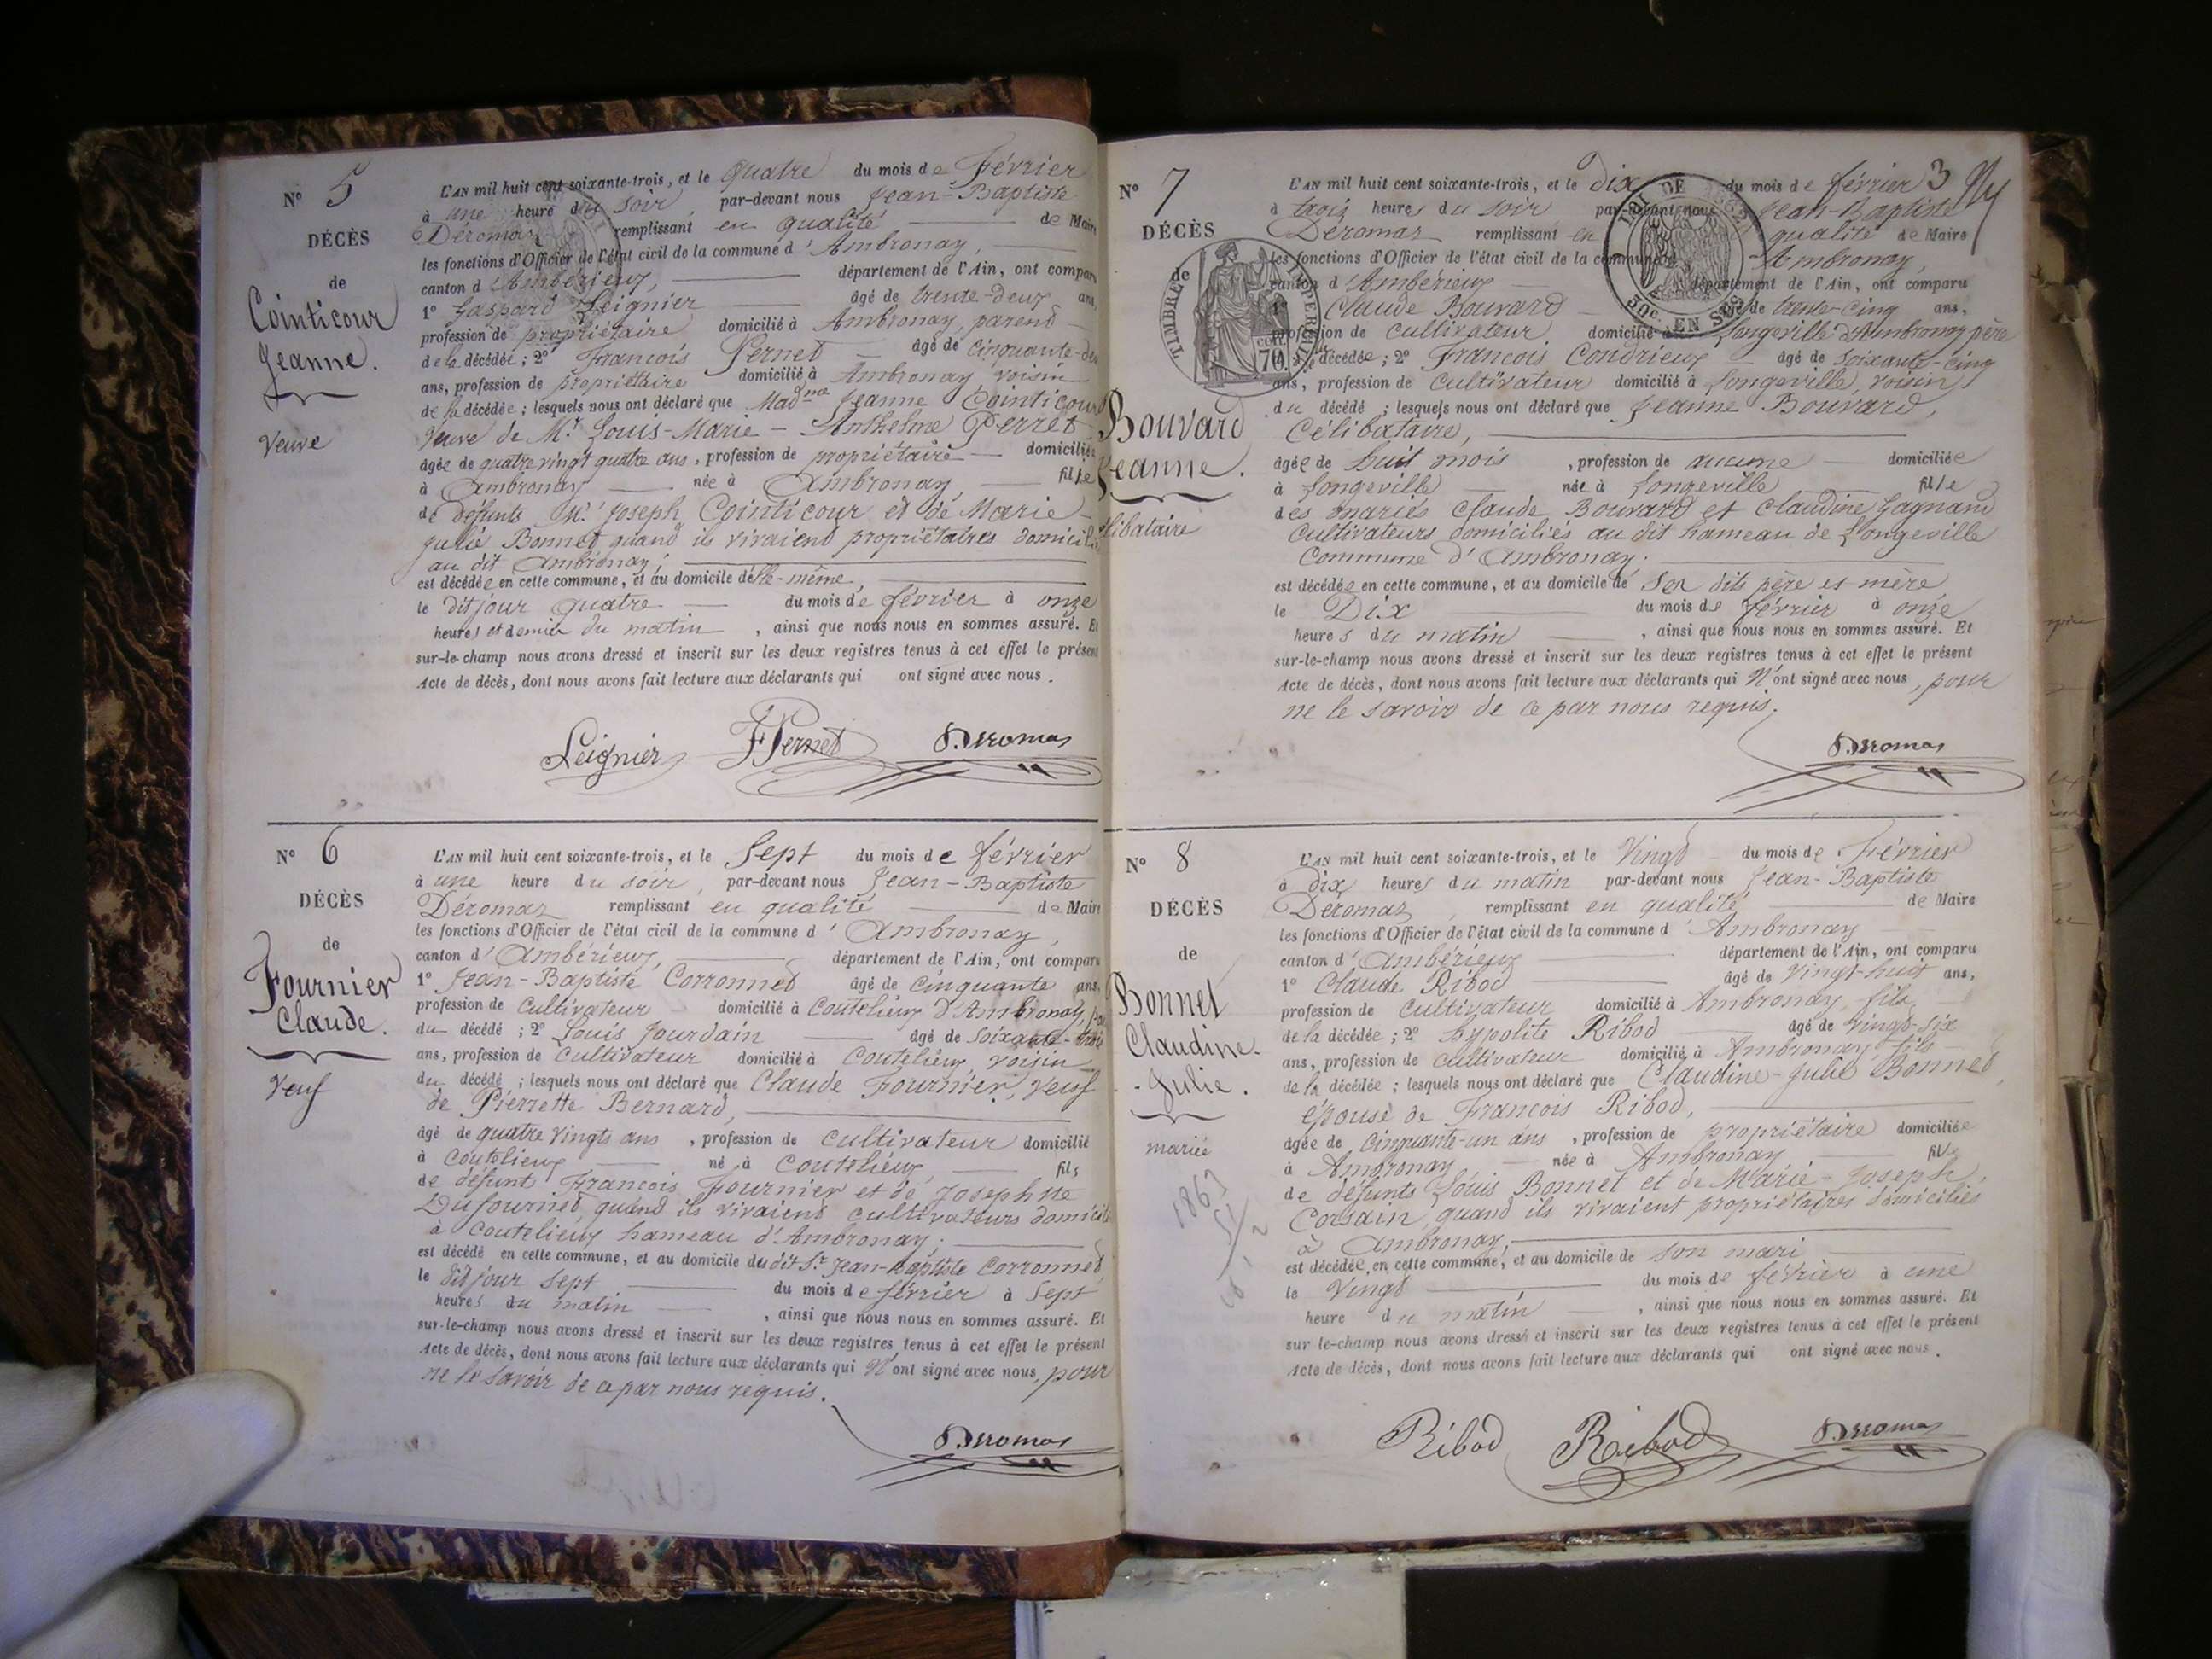 N° 5
DÉCÈS
de
Cointicour
Jeanne.
Veuve
L'AN mil huit cent soixante-trois, et le quatre du mois de Février
à une heure du soir par-devant nous Jean-Baptiste
Déromas remplissant en qualité de Maire
les fonctions d'Officier de l'état civil de la commune d'Ambronay,
canton d'Ambérieux, département de l'Ain, ont comparu
1° Gaspard Leignier âgé de trente-deux ans,
profession de propriétaire domicilié à Ambronay, parent
de la décédée ; 2° François Pernet âgé de Cinquante-
ans, profession de propriétaire domicilié à Ambronay voisin
de la décédée ; lesquels nous ont déclaré que Mad.me Jeanne Cointicour
Veuve de Mr. Louis-Marie-Anthelme Perret
âgée de quatre vingt quatre ans, profession de propriétaire domiciliée
à Ambronay née à Ambronay fille
de défunts Mr. Joseph Cointicour et de Marie-
Julie Bonnet quand ils vivaient propriétaires domiciliés
au dit Ambronay,
est décédée en cette commune, et au domicile d'elle-même,
le dit jour quatre du mois de février à onze
heures et demie du matin, ainsi que nous nous en sommes assuré. Et
sur-le-champ nous avons dressé et inscrit sur les deux registres tenus à cet effet le présent
Acte de décès, dont nous avons fait lecture aux déclarants qui ont signé avec nous.
Leignier FPernet Déromas
N° 6
DÉCÈS
de
Fournier
Claude.
Veuf
L'AN mil huit cent soixante-trois, et le Sept du mois de février
à une heure du soir, par-devant nous Jean-Baptiste
Déromas remplissant en qualité de Maire
les fonctions d'Officier de l'état civil de la commune d'Ambronay,
canton d'Ambérieux, département de l'Ain, ont comparu
1° Jean-Baptiste Corronnet âgé de Cinquante ans,
profession de Cultivateur domicilié à Coutelieux d'Ambronay,
du décédé ; 2° Louis Jourdain âgé de soixante-trois
ans, profession de Cultivateur domicilié à Coutelieux voisin
du décédé ; lesquels nous ont déclaré que Claude Fournier, Veuf
de Pierrette Bernard,
âgé de quatre vingts ans, profession de cultivateur domicilié
à Coutelieux né à Coutelieux fils
de défunt François Fournier et de Josephte
Dufournet, quand ils vivaient cultivateurs domiciliés
à Coutelieux hameau d'Ambronay,
est décédé en cette commune, et au domicile du dit Sr. Jean-Baptiste Corronnet
le dit jour sept du mois de février à Sept
heures du matin, ainsi que nous nous en sommes assuré. Et
sur-le-champ nous avons dressé et inscrit sur les deux registres tenus à cet effet le présent
Acte de décès, dont nous avons fait lecture aux déclarants qui N'ont signé avec nous, pour
ne le savoir de ce par nous requis.
Déromas
N° 7
3
DÉCÈS
de
Bouvard
Jeanne.
célibataire
TIMBRE IMPERIAL
70
LOI DE 1862
50c. EN SUS
L'AN mil huit cent soixante-trois, et le Dix du mois de février
à trois heures du soir par-devant nous Jean-Baptiste
Déromas remplissant en qualité de Maire
les fonctions d'Officier de l'état civil de la commune d'Ambronay
canton d'Ambérieux département de l'Ain, ont comparu
1° Claude Bouvard âgé de trente-cinq ans,
profession de Cultivateur domicilié à Longeville d'Ambronay père
décédée ; 2° François Condrieux âgé de Soixante-cinq
ans, profession de Cultivateur domicilié à Longeville, voisin
du décédé ; lesquels nous ont déclaré que Jeanne Bouvard,
Célibataire,
âgée de huit mois, profession de aucune domiciliée
à Longeville née à Longeville fille
des mariés Claude Bouvard et Claudine Gagnand
Cultivateurs domiciliés au dit hameau de Longeville
Commune d'Ambronay.
est décédée en cette commune, et au domicile de Ses dits père et mère
le Dix du mois de février à onze
heures du matin, ainsi que nous nous en sommes assuré. Et
sur-le-champ nous avons dressé et inscrit sur les deux registres tenus à cet effet le présent
Acte de décès, dont nous avons fait lecture aux déclarants qui N'ont signé avec nous, pour
ne le savoir de ce par nous requis.
Déromas
N° 8
DÉCÈS
de
Bonnet
Claudine-
-Julie.
mariée
1863
L'AN mil huit cent soixante-trois, et le Vingt du mois de Février
à dix heures du matin par-devant nous Jean-Baptiste
Déromas, remplissant en qualité de Maire
les fonctions d'Officier de l'état civil de la commune d'Ambronay
canton d'Ambérieux département de l'Ain, ont comparu
1° Claude Ribod âgé de Vingt-huit ans,
profession de Cultivateur domicilié à Ambronay, fils
de la décédée ; 2° hypolite Ribod âgé de vingt-six
ans, profession de cultivateur domicilié à Ambronay fils
de la décédée ; lesquels nous ont déclaré que Claudine-Julie Bonnet,
épouse de François Ribod,
âgée de Cinquante-un ans, profession de propriétaire domiciliée
à Ambronay née à Ambronay fille
de défunts Louis Bonnet et de Marie-Joseph
Corsain, quand ils vivaient propriétaires domiciliés
à Ambronay,
est décédée en cette commune, et au domicile de son mari
le Vingt du mois de février à une
heure du matin, ainsi que nous nous en sommes assuré. Et
sur le-champ nous avons dressé et inscrit sur les deux registres tenus à cet effet le présent
Acte de décès, dont nous avons fait lecture aux déclarants qui ont signé avec nous.
Ribod Ribod Déromas